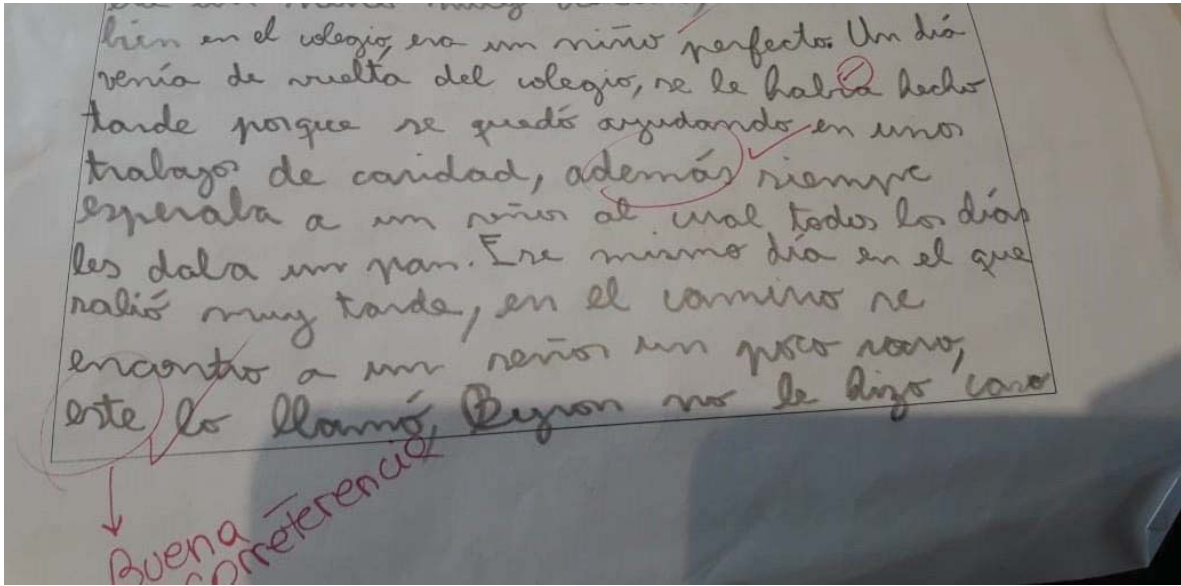 bien en el colegio, era un niño perfecto. Un día
venía de vuelta del colegio, se le había hecho
tarde porque se quedó ayudando en unos
trabajos de caridad, además siempre
esperaba a un señor al cual todos los días
les daba un pan. Ese mismo día en el que
salió muy tarde, en el camino se
encontro a un señor un poco raro,
este lo llamó, Byron no le hizo caso
Buena
correferencia